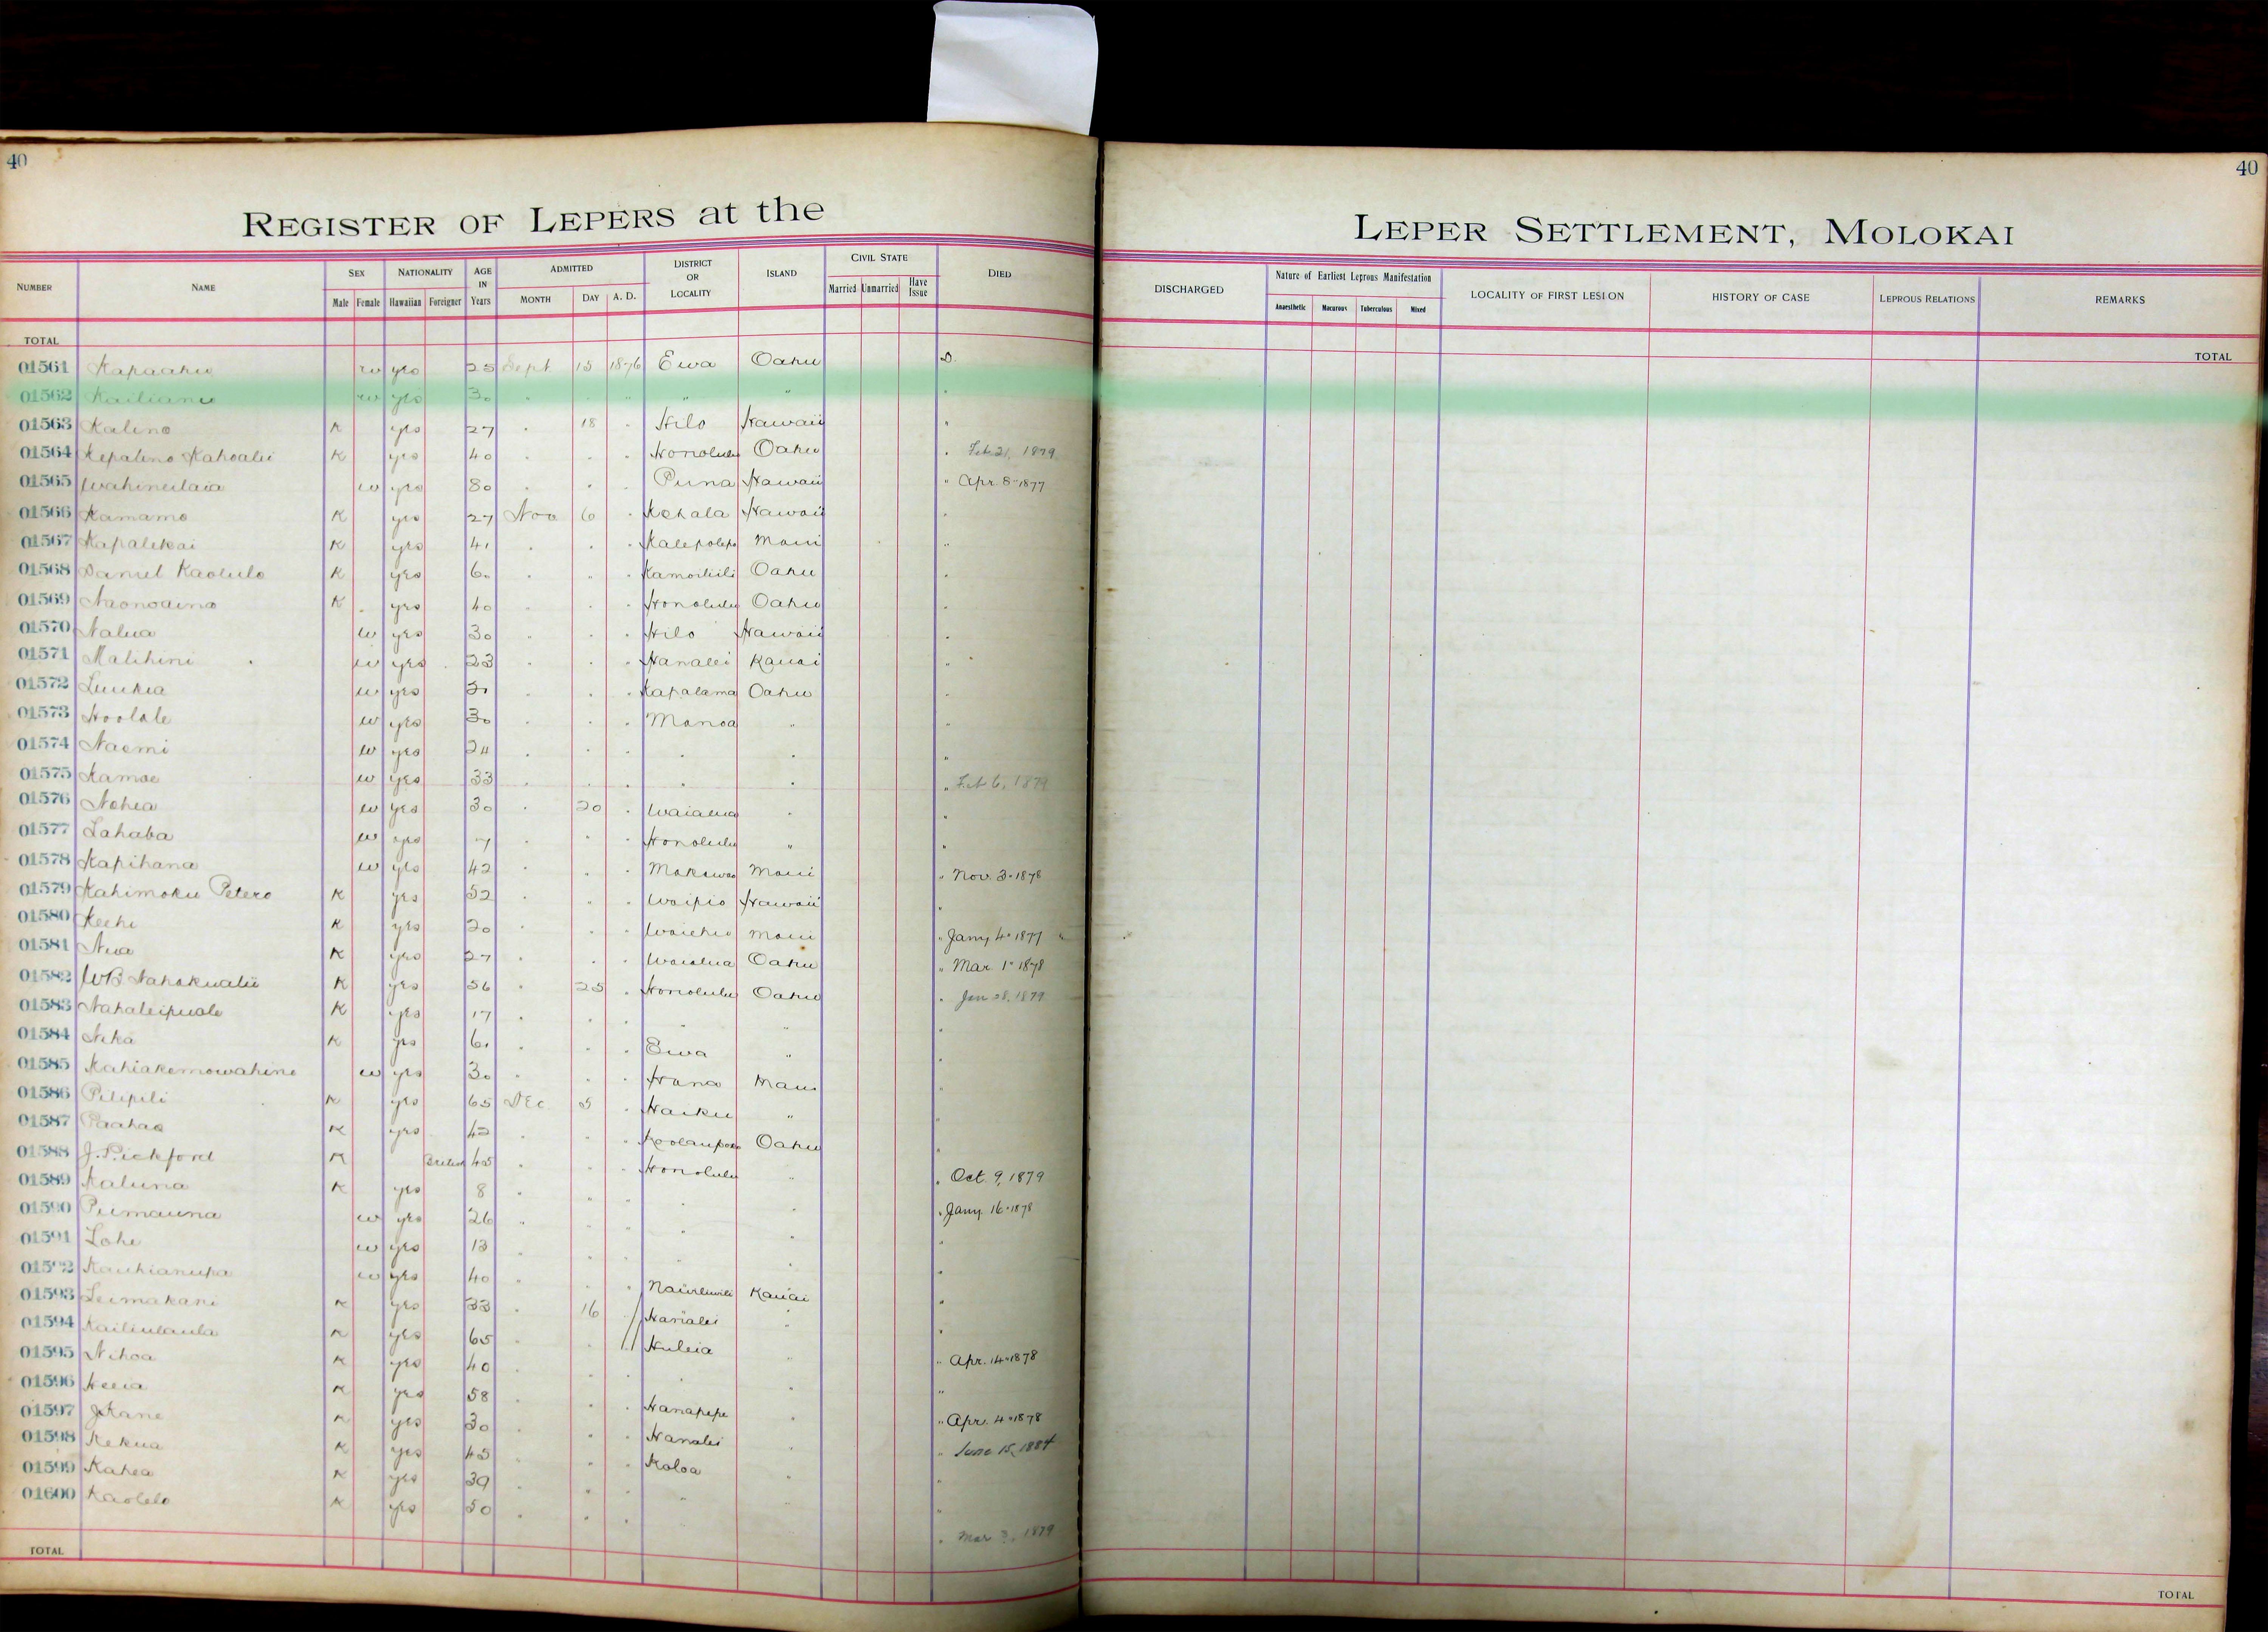 40
REGISTER OF LEPERS at the
NUMBER NAME SEX Male Female NATIONALITY Hawaiian Foreigner AGE IN Years ADMITTED MONTH DAY A. D. DISTRICT OR LOCALITY ISLAND CIVIL STATE Married Unmarried Have Issue DIED
TOTAL
01561 Kapaahu w yes 25 Sept 15 1876 Ewa Oahu D.
01562 Kailianu w yes 30 " " " " " "
01563 Kalino K yes 27 " 18 " Hilo Hawaii "
01564 Kepalino Kahoalii K yes 40 " " " Honolulu Oahu " Feb 21, 1879
01565 Wahineilaia w yes 80 " " " Puna Hawaii " Apr. 8 - 1877
01566 Kamamo K yes 27 Nov 6 " Kohala Hawaii "
01567 Kapalekai K yes 41 " " " Kalepolepo Maui "
01568 Daniel Kaolulo K yes 60 " " " Kamoiliili Oahu "
01569 Naonoaina K yes 40 " " " Honolulu Oahu "
01570 Nalua w yes 30 " " " Hilo Hawaii "
01571 Malihini w yes 23 " " " Hanalei Kauai "
01572 Luukia w yes " " " Kapalama Oahu "
01573 Hoolale w yes 30 " " " Manoa " "
01574 Naomi w yes 24 " " " " " "
01575 Kamae w yes 33 " " " " " " Feb 6, 1879
01576 Nohea w yes 30 " 20 " Waialua " "
01577 Lahaba w yes 7 " " " Honolulu " "
01578 Kapihana w yes 42 " " " Makawao Maui " Nov. 3 - 1878
01579 Kahimoku Petero K yes 52 " " " Waipio Hawaii "
01580 Keehi K yes 20 " " " Waiehu Maui " Jany 4 - 1877
01581 Nua K yes 27 " " " Waialua Oahu " Mar. 1 - 1878
01582 WB Nahokualii K yes 56 " 25 " Honolulu Oahu " Jan 28, 1879
01583 Nahaleipuole K yes 17 " " " " " "
01584 Nika K yes 61 " " " Ewa " "
01585 Kahiakemowahine w yes 30 " " " Hana Maui "
01586 Pilipili K yes 65 Dec 5 " Haiku " "
01587 Paahao K yes 42 " " " Koolaupoko Oahu "
01588 J. Pickford K British 45 " " " Honolulu " " Oct. 9, 1879
01589 Kaluna K yes 8 " " " " " " Jany. 16 - 1878
01590 Puimauna w yes 26 " " " " " "
01591 Lohe w yes 13 " " " " " "
01592 Kauhianupa w yes 40 " " " Nawiliwili Kauai "
01593 Leimakani K yes 33 " 16 " Hanalei " "
01594 Kailiulaula K yes 65 " " " Huleia " " Apr. 14 - 1878
01595 Nihoa K yes 40 " " " " " "
01596 Heeia K yes 58 " " " Hanapepe " " Apr. 4 - 1878
01597 J Kane K yes 30 " " " Hanalei " " June 15, 1884
01598 Kekua K yes 45 " " " Koloa " "
01599 Kahea K yes 39 " " " " " "
01600 Kaolelo K yes 50 " " " " Mar 3, 1879
TOTAL
40
LEPER SETTLEMENT, MOLOKAI
DISCHARGED Nature of Earliest Leprous Manifestation Anaesthetic Macurous Tuberculous Mixed LOCALITY OF FIRST LESION HISTORY OF CASE LEPROUS RELATIONS REMARKS
TOTAL
TOTAL